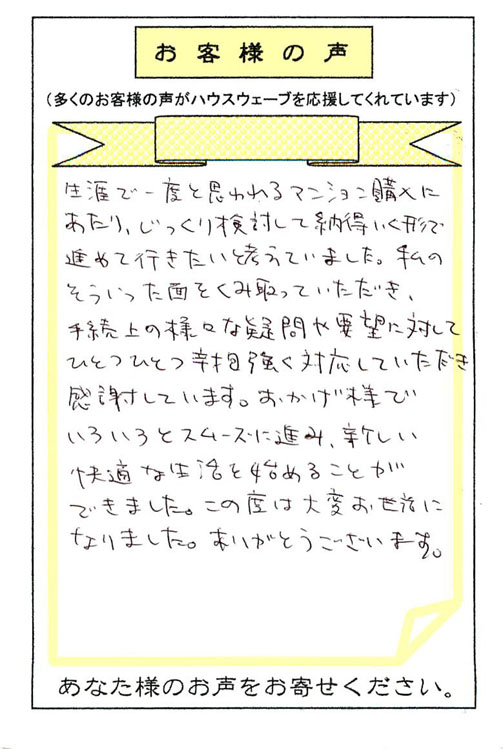 お客様の声
（多くのお客様の声がハウスウェーブを応援してくれています）
生涯で一度と思われるマンション購入に
あたり、じっくり検討して納得いく形で
進めて行きたいと考えていました。私の
そういった面をくみ取っていただき、
手続上の様々な疑問や要望に対して
ひとつひとつ辛抱強く対応していただき
感謝しています。おかげ様で
いろいろとスムーズに進み、新しい
快適な生活を始めることが
できました。この度は大変お世話に
なりました。ありがとうございます。
あなた様のお声をお寄せください。